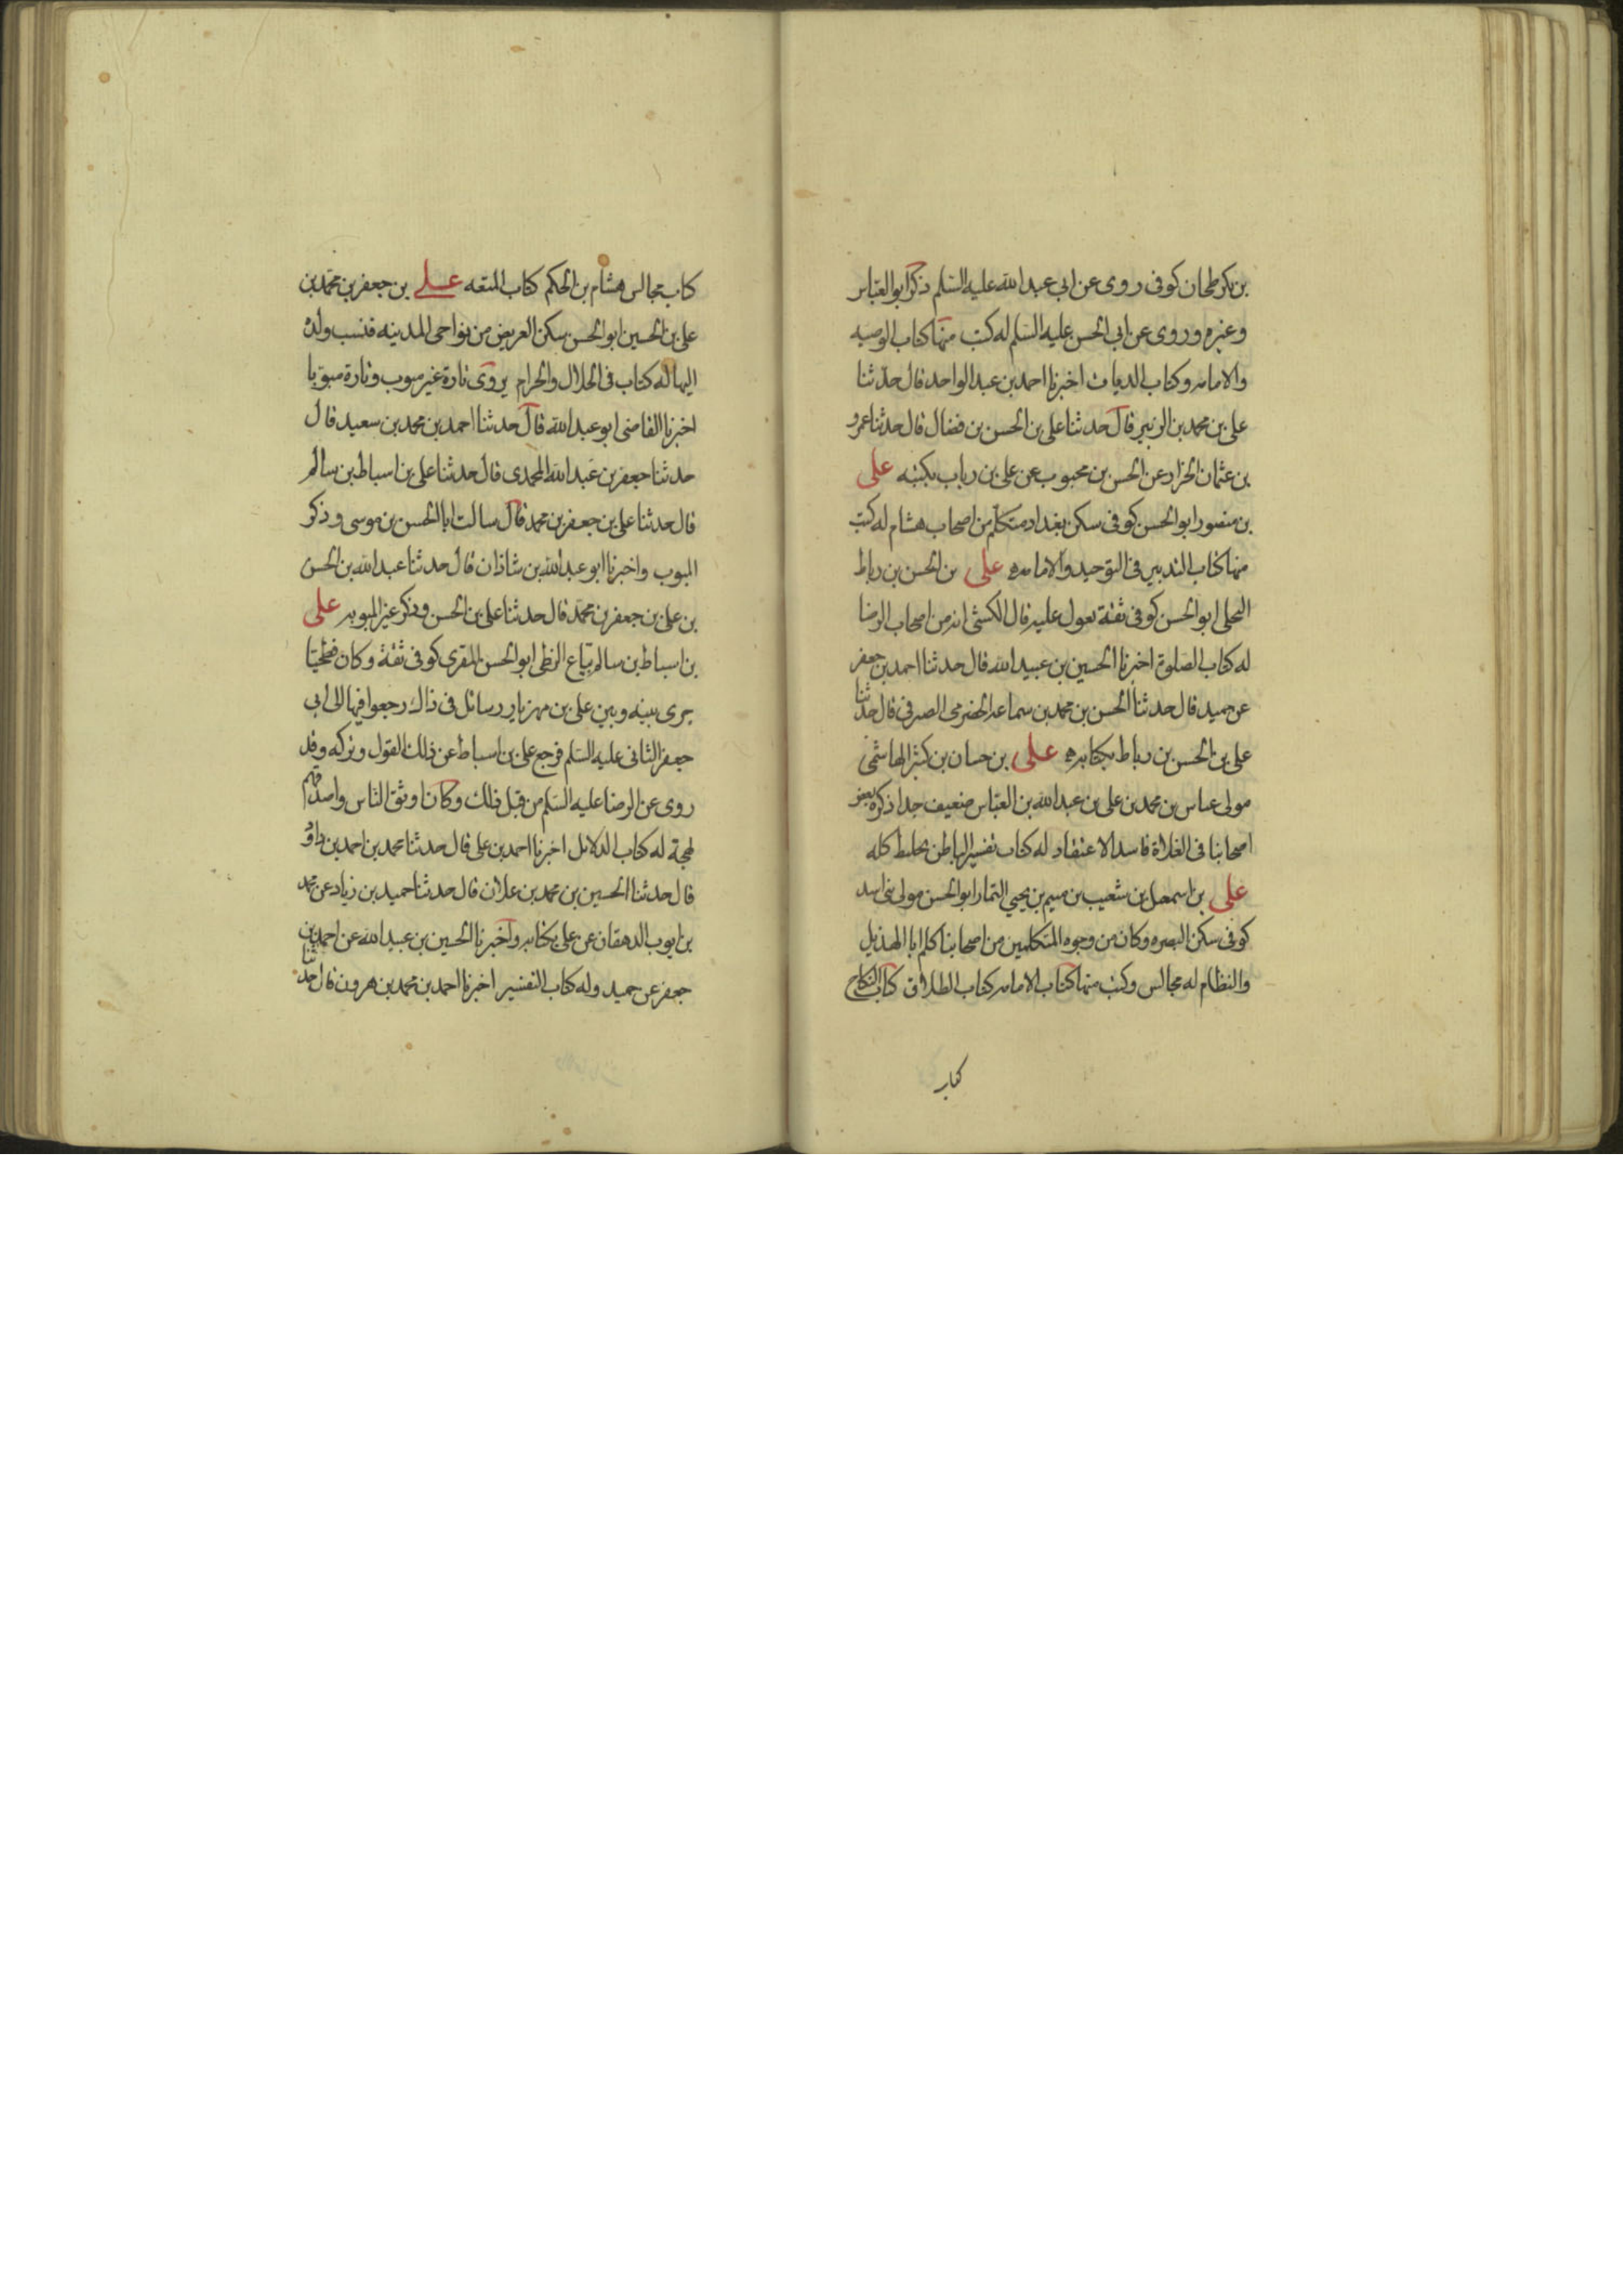 بن بكر طحان كوفى روى عن ابى عبد الله عليه السّلم ذكر ابو العبّاس
وغيره وروى عن ابى الحسن عليه السّلم له كتب منها كتاب الوصيه
والامامه وكتاب الديات اخبرنا احمد بن عبد الواحد قال حدّثنا
على بن محمد بن الزبير قال حدثنا على بن الحسن بن فضال قال حدثنا عمرو
بن عثمان الخزاز عن الحسن بن محبوب عن على بن رياب بكتبه على
بن منصور ابو الحسن كوفى سكن بغداد متكلّم من اصحاب هشام له كتب
منها كتاب التدبير فى التوحيد والامامه على بن الحسن بن رباط
البجلى ابو الحسن كوفى ثقة يعول عليه قال الكشى انه من اصحاب الرضا
له كتاب الصلوة اخبرنا الحسين بن عبيد الله قال حدثنا احمد بن جعفر
عن حميد قال حدثنا الحسن بن محمد بن سماعه الحضرمى الصيرفى قال حدثنا
على بن الحسن بن رباط بكتابه على بن حسان بن كثير الهاشمى
مولى عباس بن محمد بن على بن عبد الله بن العبّاس ضعيف جدا ذكره بعض
اصحابنا فى الغلاة فاسد الاعتقاد له كتاب تفسير الباطن تخليط كله
على بن اسمعيل بن شعيب بن ميثم بن يحيى التمار ابو الحسن مولى بنى اسد
كوفى سكن البصره وكان من وجوه المتكلمين من اصحابنا كلم ابا الهذيل
والنظام له مجالس وكتب منها كتاب الامامه كتاب الطلاق كتاب النكاح
كتاب
كتاب مجالس هشام بن الحكم كتاب المتعه على بن جعفر بن محمّد بن
على بن الحسين ابو الحسن سكن العريض من نواحى المدينه فنسب ولده
اليها له كتاب فى الحلال والحرام يروى تارة غير مبوب وتارة مبوّبا
اخبرنا القاضى ابو عبد الله قال حدثنا احمد بن محمد بن سعيد قال
حدثنا جعفر بن عبد الله المحمدى قال حدثنا على بن اسباط بن سالم
قال حدثنا على بن جعفر بن محمد قال سالت ابا الحسن بن موسى وذكر
المبوب واخبرنا ابو عبد الله بن شاذان قال حدثنا عبد الله بن الحسن
بن على بن جعفر بن محمّد قال حدثنا على بن الحسن وذكر غير المبوبه على
بن اسباط بن سالم بيّاع الزطى ابو الحسن المقرى كوفى ثقة وكان فطحيّا
جرى بينه وبين على بن مهزيار رسائل فى ذاك رجعوا فيها الى ابى
جعفر الثانى عليه السّلم فرجع على بن اسباط عن ذلك القول وتركه وقد
روى عن الرضا عليه السّلم من قبل ذلك وكان اوثق الناس واصدقهم
لهجة له كتاب الدلائل اخبرنا احمد بن على قال حدثنا محمد بن احمد بن داوُد
قال حدثنا الحسين بن محمد بن علان قال حدثنا حميد بن زياد عن محمد
بن ايوب الدهقان عن على بكتابه واخبرنا الحسين بن عبيد الله عن احمد بن
جعفر عن حميد وله كتاب التفسير اخبرنا احمد بن محمد بن هرون قال حدّثنا